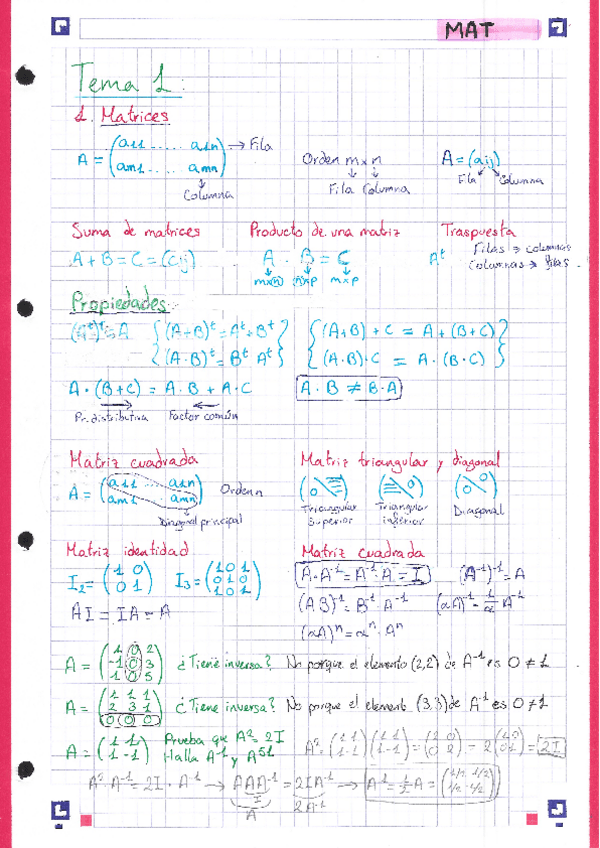 MAT
Tema 1:
1. Matrices
A = (a11 ..... a1n → Fila
am1 .... amn)
↓ Columna
Orden m x n
Fila Columna
A = (aij)
Fila Columna
Suma de matrices
A + B = C = (cij)
Producto de una matriz
A · B = C
mxn nxp mxp
Traspuesta
A^t Filas → columnas
Columnas → filas
Propiedades
(A^t)^t = A { (A+B)^t = A^t + B^t }
{ (A·B)^t = B^t A^t }
{ (A+B) + C = A + (B+C) }
{ (A·B)·C = A·(B·C) }
A · (B+C) = A·B + A·C
A · B ≠ B·A
Pr. distributiva Factor común
Matriz cuadrada
A = (a11 ..... a1n
am1 amn) Orden n
Diagonal principal
Matriz triangular y diagonal
Triangular Superior
Triangular inferior
Diagonal
Matriz identidad
I2 = (1 0
0 1)
I3 = (1 0 1
0 1 0
1 0 1)
AI = IA = A
Matriz cuadrada
A·A^-1 = A^-1·A = I (A^-1)^-1 = A
(AB)^-1 = B^-1·A^-1 (αA)^-1 = 1/α A^-1
(αA)^n = α^n · A^n
A = (1 0 2
-1 0 3
1 0 5) ¿Tiene inversa? No porque el elemento (2,2) de A^-1 es 0 ≠ 1
A = (1 1 1
2 3 1
0 0 0) ¿Tiene inversa? No porque el element (3,3) de A^-1 es 0 ≠ 1
A = (1 1
1 -1) Prueba que A² = 2I
Halla A^-1 y A^51
A² = (1 1
1 -1)(1 1
1 -1) = (2 0
0 2) = 2(1 0
0 1) = 2I
A²·A^-1 = 2I · A^-1 → AAA^-1 = 2IA^-1 → A^-1 = 1/2 A = (1/2 1/2
1/2 -1/2)
I
A 2A^-1